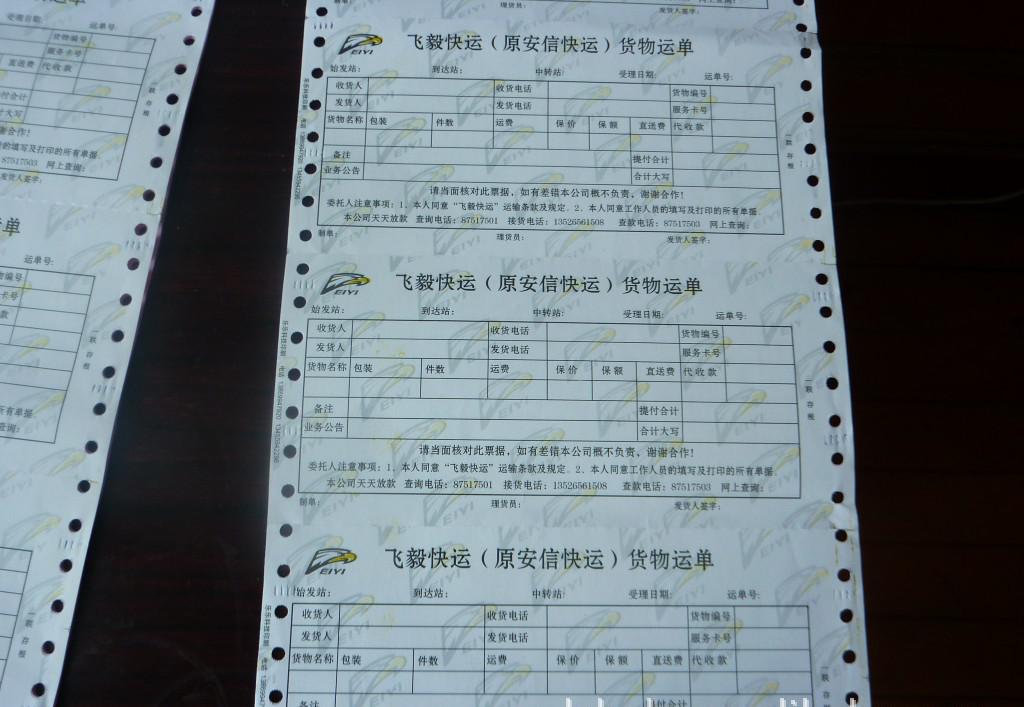 理货员:
发货人签字:
飞毅快运（原安信快运）货物运单
FEIYI
始发站: 到达站: 中转站: 受理日期: 运单号:
收货人 收货电话 货物编号
发货人 发货电话 服务卡号
货物名称 包装 件数 运费 保价 保额 直送费 代收款
备注 提付合计
业务公告 合计大写
请当面核对此票据，如有差错本公司概不负责，谢谢合作！
委托人注意事项：1、本人同意“飞毅快运”运输条款及规定。2、本人同意工作人员的填写及打印的所有单据。
本公司天天放款 查询电话：87517501 接货电话：13526561508 查款电话：87517503 网上查询：
制单: 理货员: 发货人签字:
一联 存根
飞毅快运（原安信快运）货物运单
FEIYI
始发站: 到达站: 中转站: 受理日期: 运单号:
收货人 收货电话 货物编号
发货人 发货电话 服务卡号
货物名称 包装 件数 运费 保价 保额 直送费 代收款
备注 提付合计
业务公告 合计大写
请当面核对此票据，如有差错本公司概不负责，谢谢合作！
委托人注意事项：1、本人同意“飞毅快运”运输条款及规定。2、本人同意工作人员的填写及打印的所有单据。
本公司天天放款 查询电话：87517501 接货电话：13526561508 查款电话：87517503 网上查询：
制单: 理货员: 发货人签字:
一联 存根
飞毅快运（原安信快运）货物运单
FEIYI
始发站: 到达站: 中转站: 受理日期: 运单号:
收货人 收货电话 货物编号
发货人 发货电话 服务卡号
货物名称 包装 件数 运费 保价 保额 直送费 代收款
备注 提付合计
一联 存根
运单
受理日期: 运单号:
货物编号
服务卡号
直送费 代收款
付合计
计大写
谢合作！
的填写及打印的所有单据
87517503 网上查询：
发货人签字:
一联 存根
单
运单号:
物编号
卡号
款
所有单据
查询：
一联 存根
一联 存根